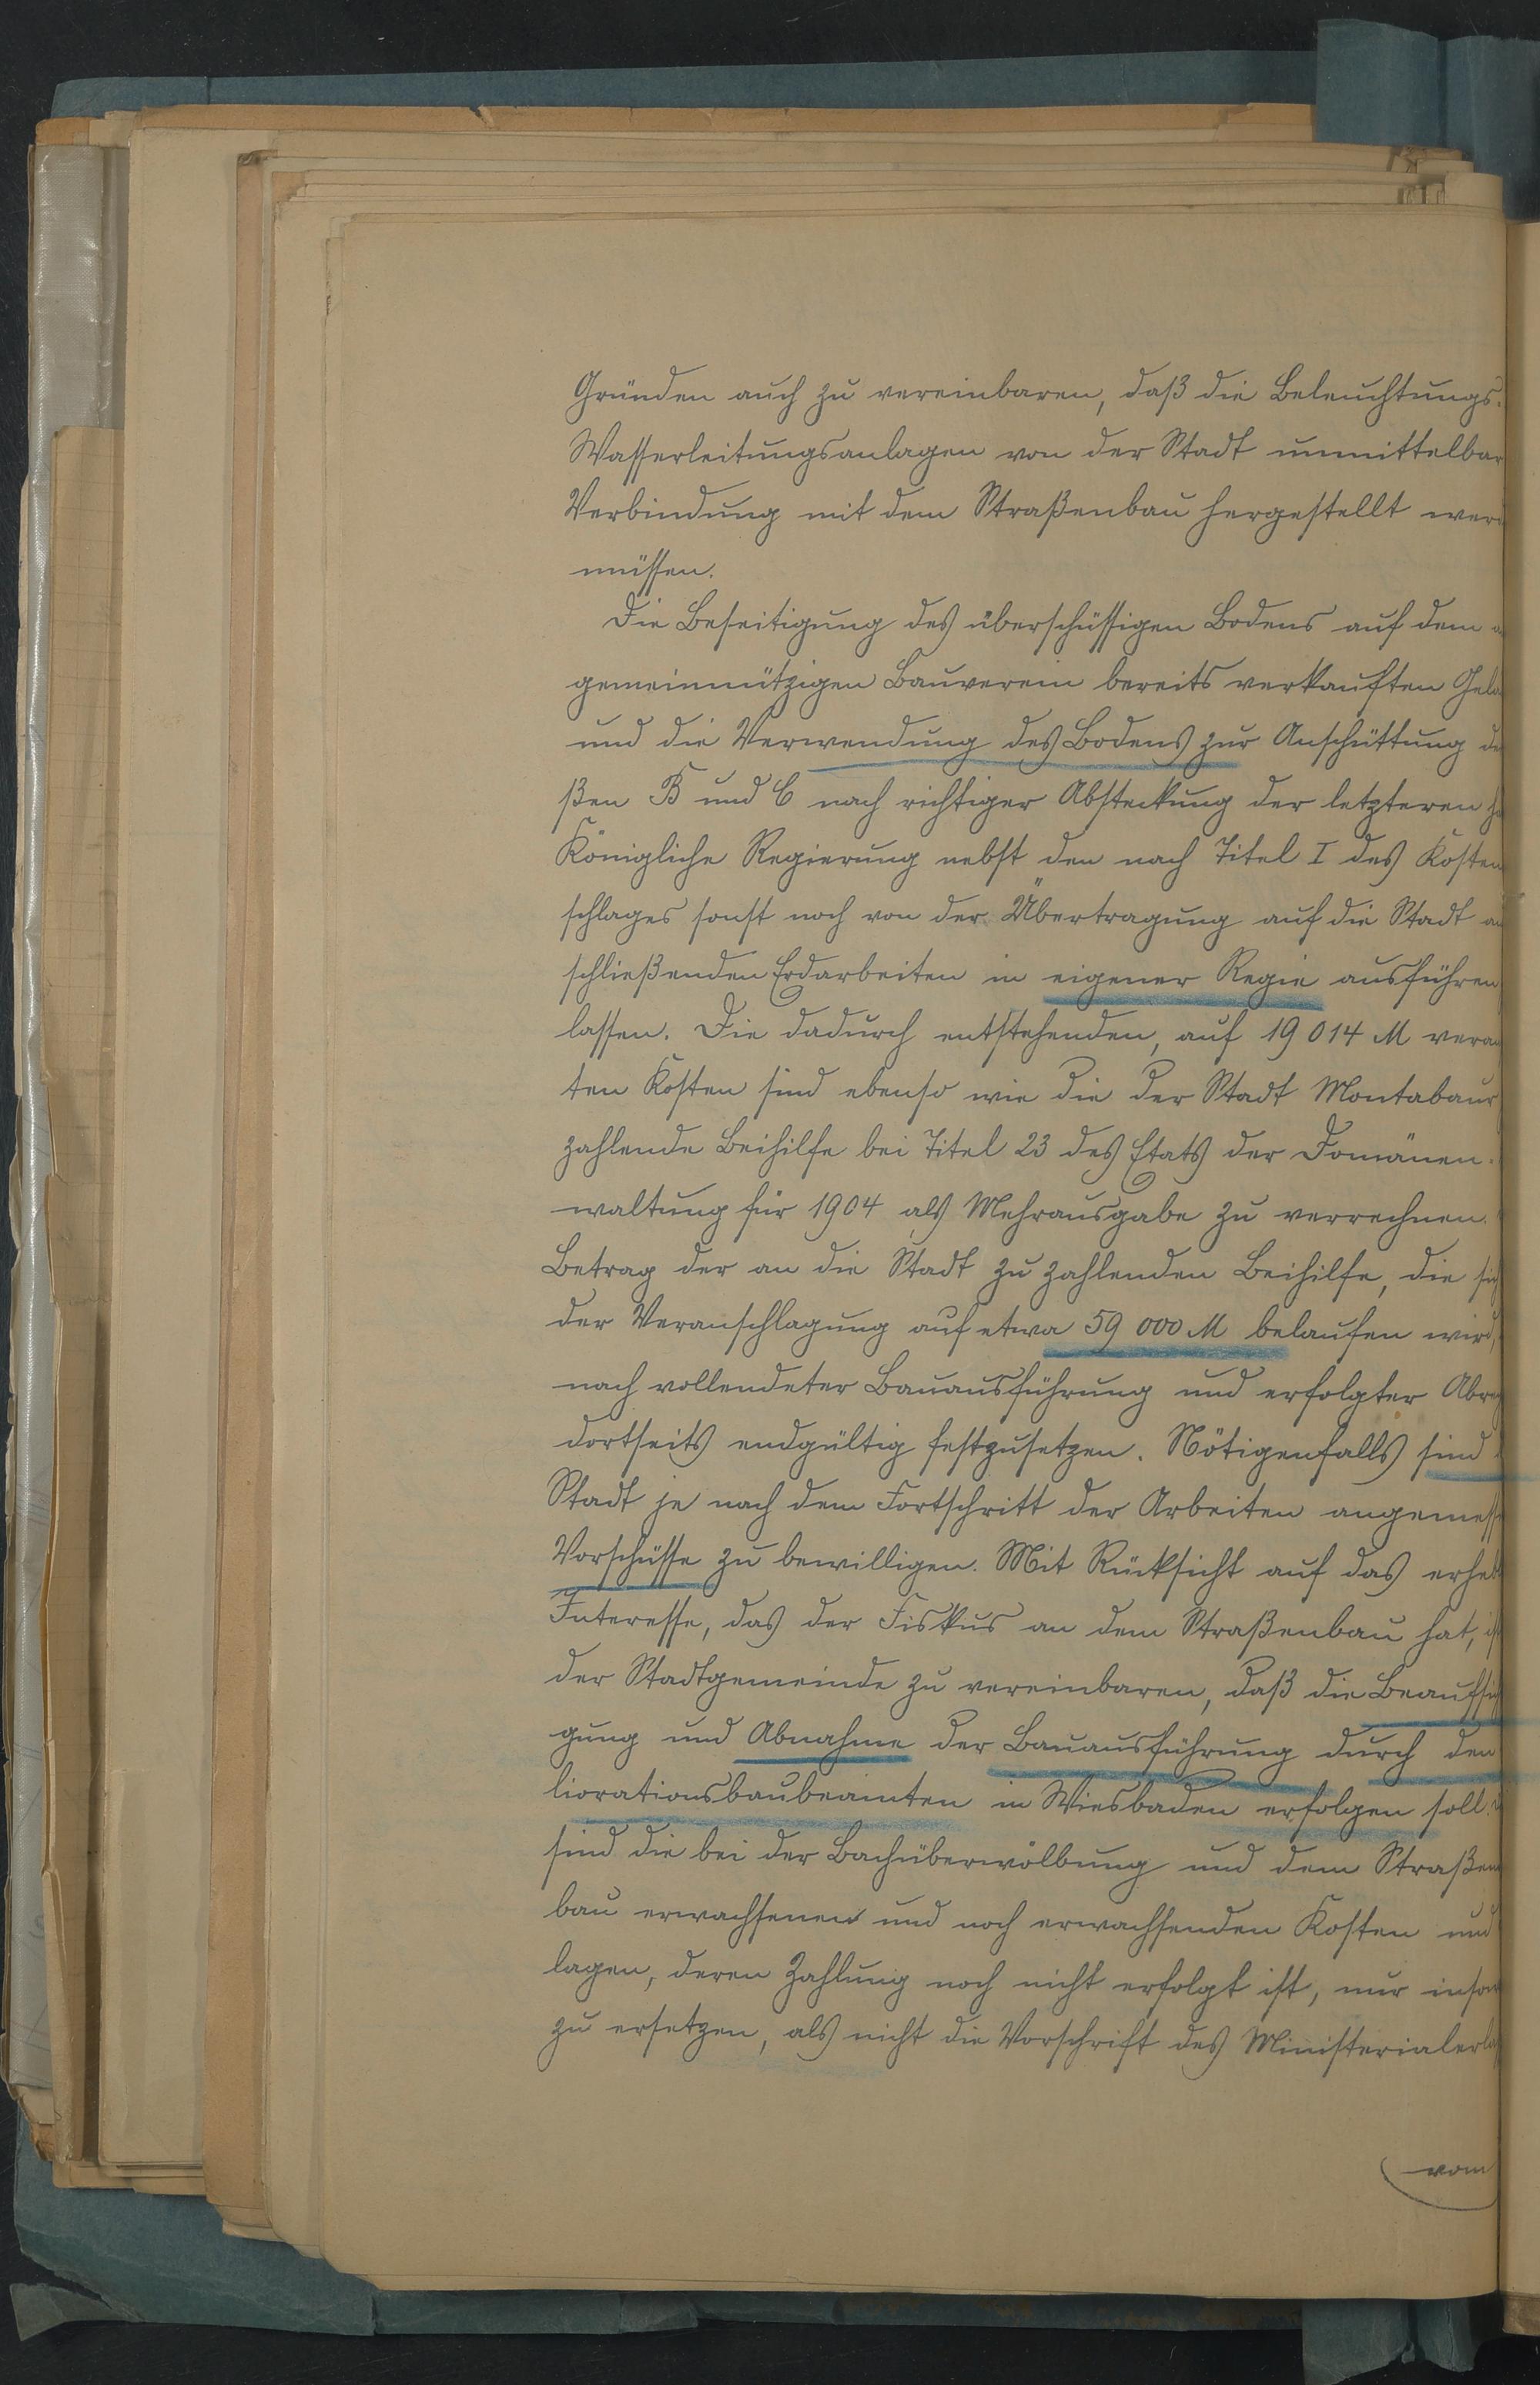 Gründen auch zu vereinbaren, daß die Beleuchtungs-
Wasserleitungsanlagen von der Stadt unmittelbar
Verbindung mit dem Straßenbau hergestellt werd
müssen.
Die Beseitigung des überschüssigen Bodens auf dem
gemeinnützigen Bauverein bereits verkauften Gelä
und die Verwendung des Bodens zur Anschüttung de
ßen B und C nach richtiger Absteckung der letzteren
Königliche Regierung nebst den nach Titel I des Kosten
schlages sonst noch von der Übertragung auf die Stadt
schließenden Erdarbeiten in eigener Regie ausführen
lassen. Die dadurch entstehenden, auf 19 014 M veran
ten Kosten sind ebenso wie die der Stadt Montabaur
zahlende Beihilfe bei Titel 23 des Etats der Domänen-
waltung für 1904 als Mehrausgabe zu verrechnen.
Betrag der an die Stadt zu zahlenden Beihilfe, die sich
der Veranschlagung auf etwa 59 000 M belaufen wird,
nach vollendeter Bauausführung und erfolgter Abre
dortseits endgültig festzusetzen. Nötigenfalls sind
Stadt je nach dem Fortschritt der Arbeiten angemess
Vorschüsse zu bewilligen. Mit Rücksicht auf das erheb
Interesse, das der Fiskus an dem Straßenbau hat, ist
der Stadtgemeinde zu vereinbaren, daß die Beaufsich
gung und Abnahme der Bauausführung durch den
liorationsbaubeamten in Wiesbaden erfolgen soll.
sind die bei der Bachüberwölbung und dem Straßen
bau erwachsenen und noch erwachsenden Kosten und
lagen, deren Zahlung noch nicht erfolgt ist, nur inso
zu ersetzen, als nicht die Vorschrift des Ministerialerla
vom